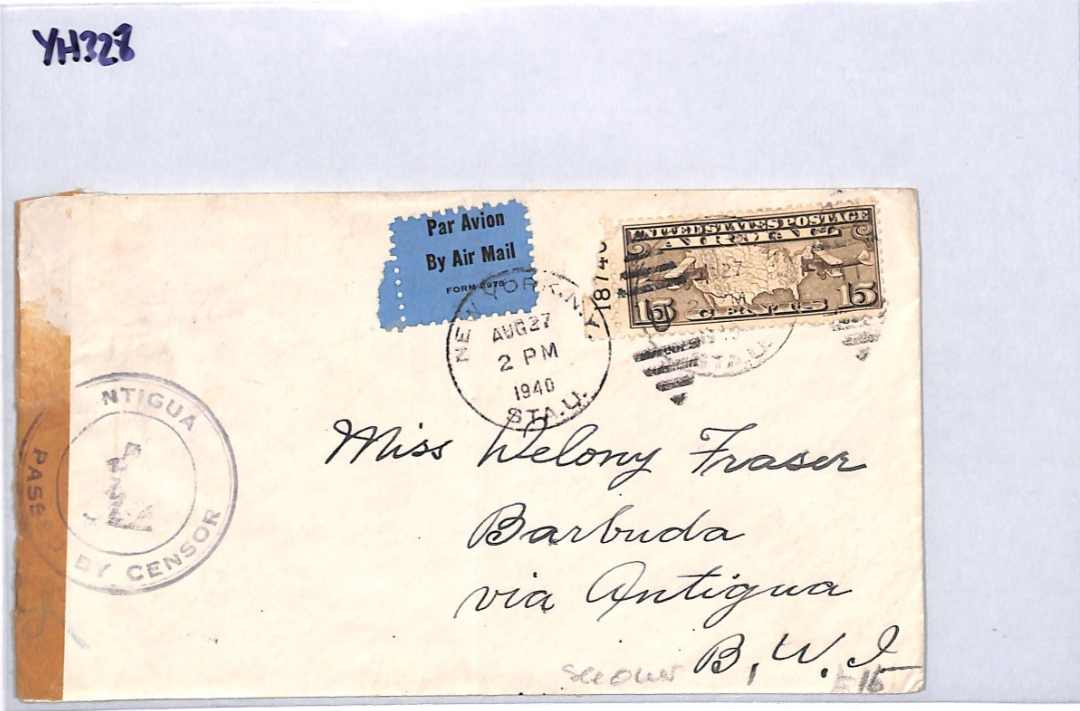 YH328
Par Avion
By Air Mail
FORM 2978
18740
UNITED STATES POSTAGE
AIR MAIL
15 CENTS 15
NEW YORK, N.Y.
AUG 27
2 PM
1940
STA. U.
NTIGUA
PASSED BY CENSOR
Miss Welony Fraser
Barbuda
via Antigua
B.W.I.
see over